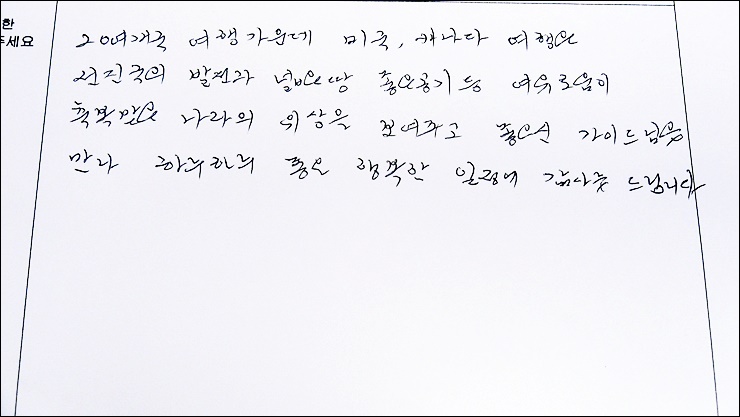 한
주세요
20여개국 여행가운데 미국, 캐나다 여행은
선진국의 발전과 넓은땅 좋은공기등 여유로움이
축복받은 나라의 위상을 보여주고 좋으신 가이드님을
만나 하루하루 좋은 행복한 일정에 감사를 드립니다